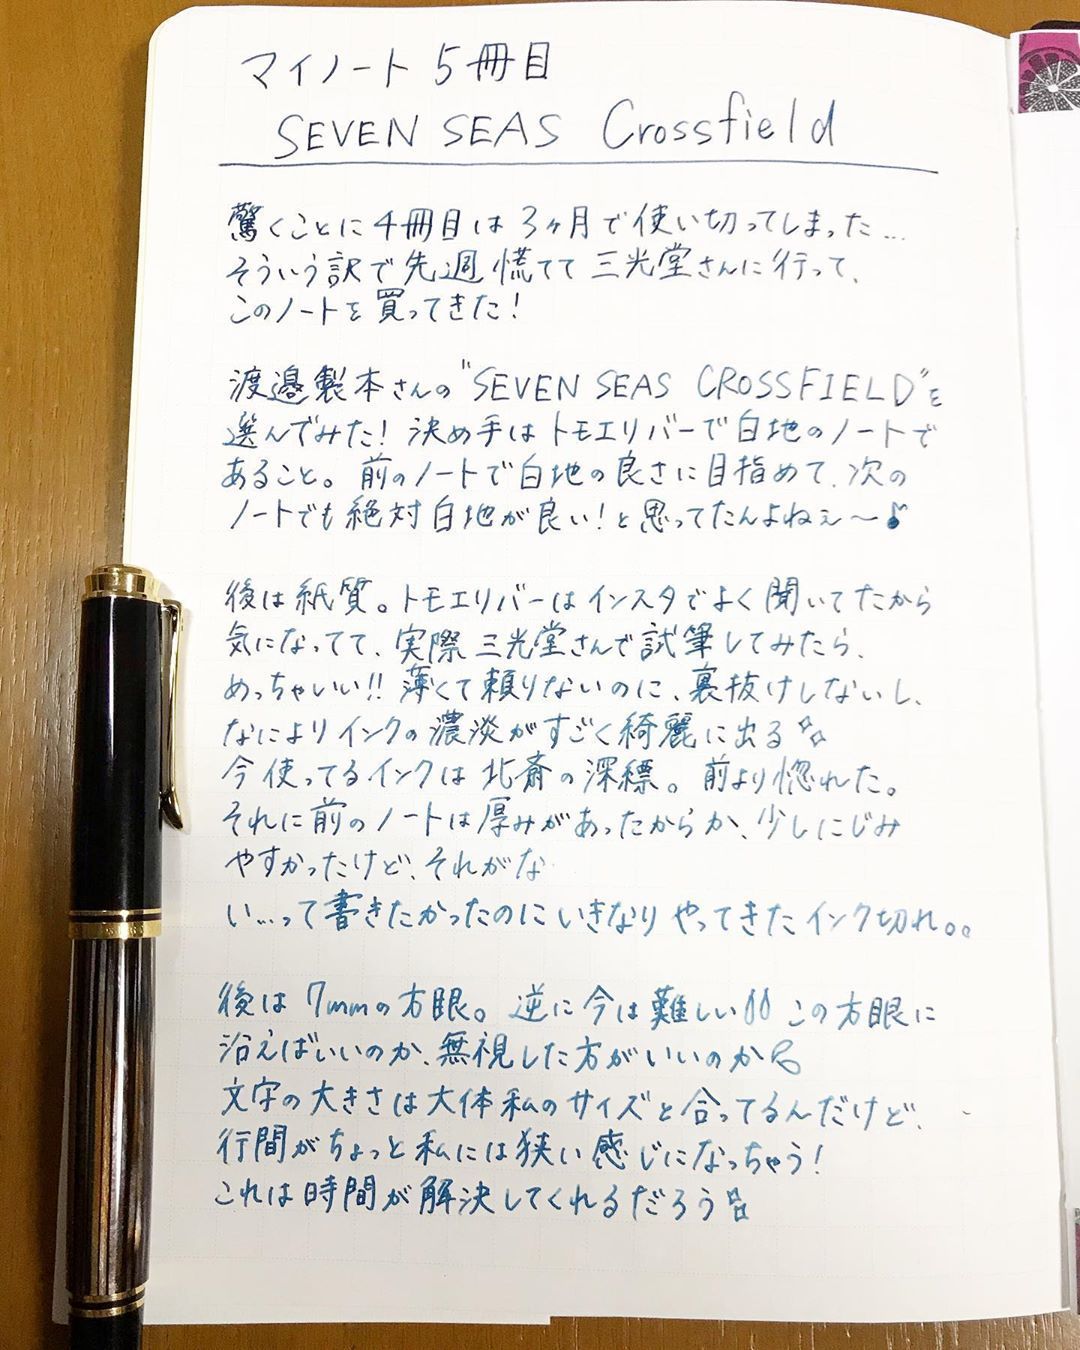 マイノート 5冊目
SEVEN SEAS Crossfield
驚くことに4冊目は3ヶ月で使い切ってしまった…
そういう訳で先週慌てて三光堂さんに行って、
このノートを買ってきた!
渡邉製本さんの"SEVEN SEAS CROSSFIELD"を
選んでみた! 決め手はトモエリバーで白地のノートで
あること。前のノートで白地の良さに目指めて、次の
ノートでも絶対白地が良い!と思ってたんよねぇ〜♪
後は紙質。トモエリバーはインスタでよく聞いてたから
気になってて、実際三光堂さんで試筆してみたら、
めっちゃいい!! 薄くて頼りないのに、裏抜けしないし、
なによりインクの濃淡がすごく綺麗に出る
今使ってるインクは北斎の深縹。前より惚れた。
それに前のノートは厚みがあったからか、少しにじみ
やすかったけど、それがな
い…って書きたかったのにいきなりやってきたインク切れ。。
後は7mmの方眼。逆に今は難しい!! この方眼に
沿えばいいのか、無視した方がいいのか
文字の大きさは大体私のサイズと合ってるんだけど、
行間がちょっと私には狭い感じになっちゃう!
これは時間が解決してくれるだろう